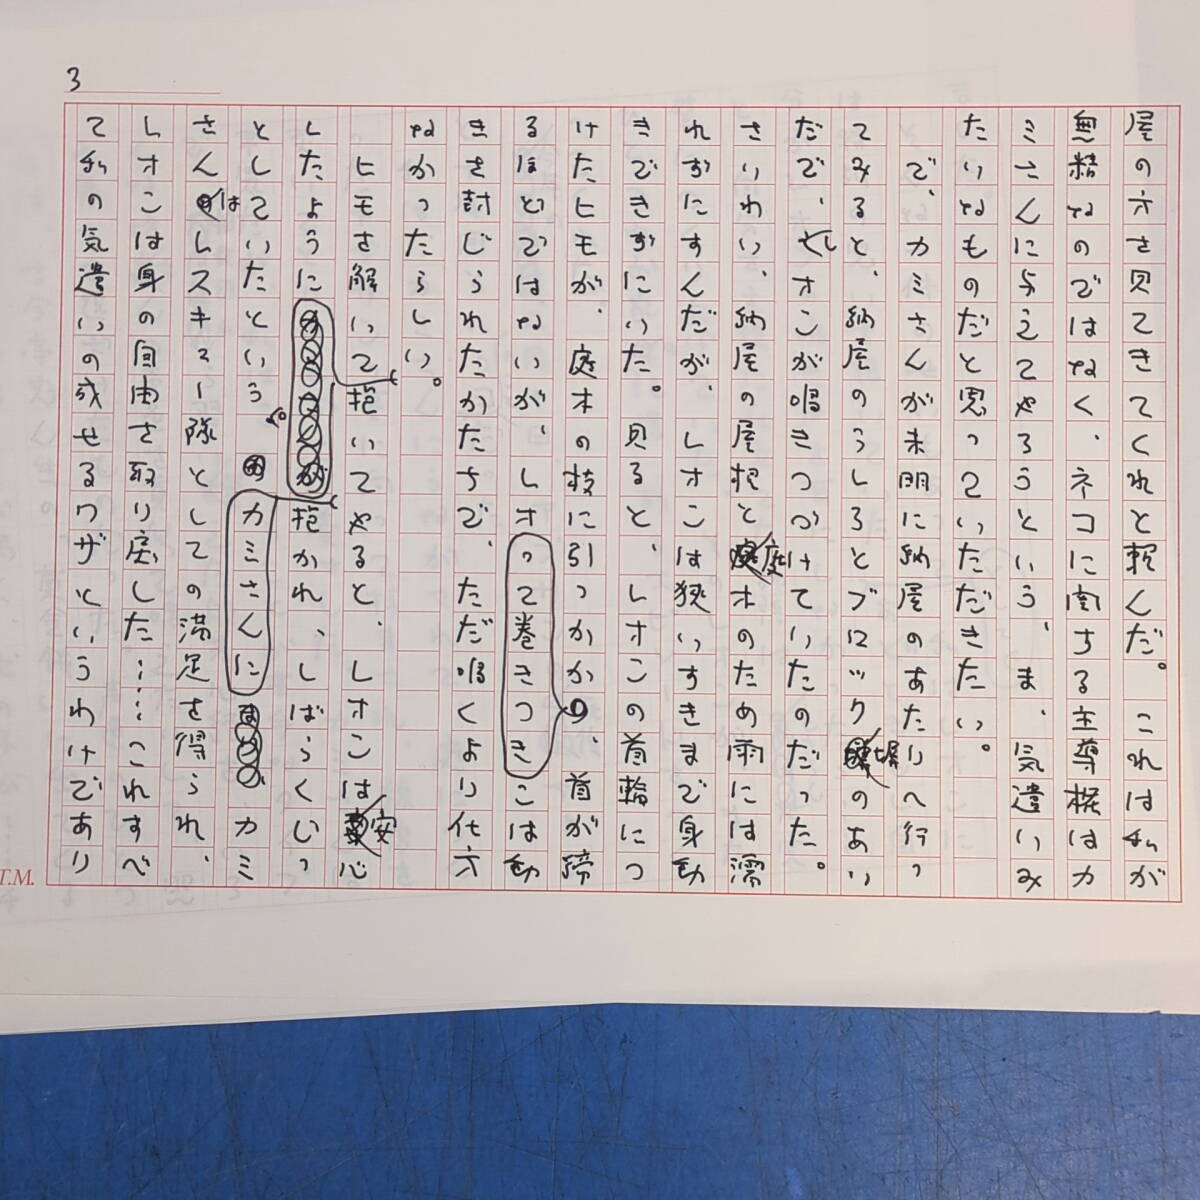 3
屋の方を見てきてくれと頼んだ。これは私が
無精なのではなく、ネコに関する主導権はカ
ミさんに与えてやろうという、ま、気遣いみ
たいなものだと思っていただきたい。
で、カミさんが未明に納屋のあたりへ行っ
てみると、納屋のうしろとブロック塀のあい
だで、シオンが鳴きつづけていたのだった。
さいわい、納屋の屋根と庭木のため雨には濡
れずにすんだが、シオンは狭いすきまで身動
きできずにいた。見ると、シオンの首輪につ
けたヒモが、庭木の枝に引っかかって巻きつき、首が締
るほどではないが、シオンは動
きを封じられたかたちで、ただ鳴くより仕方
なかったらしい。
ヒモを解いて抱いてやると、シオンは安心
したようにカミさんに抱かれ、しばらくじっ
としていたという。カミ
さんはレスキュー隊としての満足を得られ、
シオンは身の自由を取り戻した……これすべ
て私の気遣いの成せるワザというわけであり
T.M.